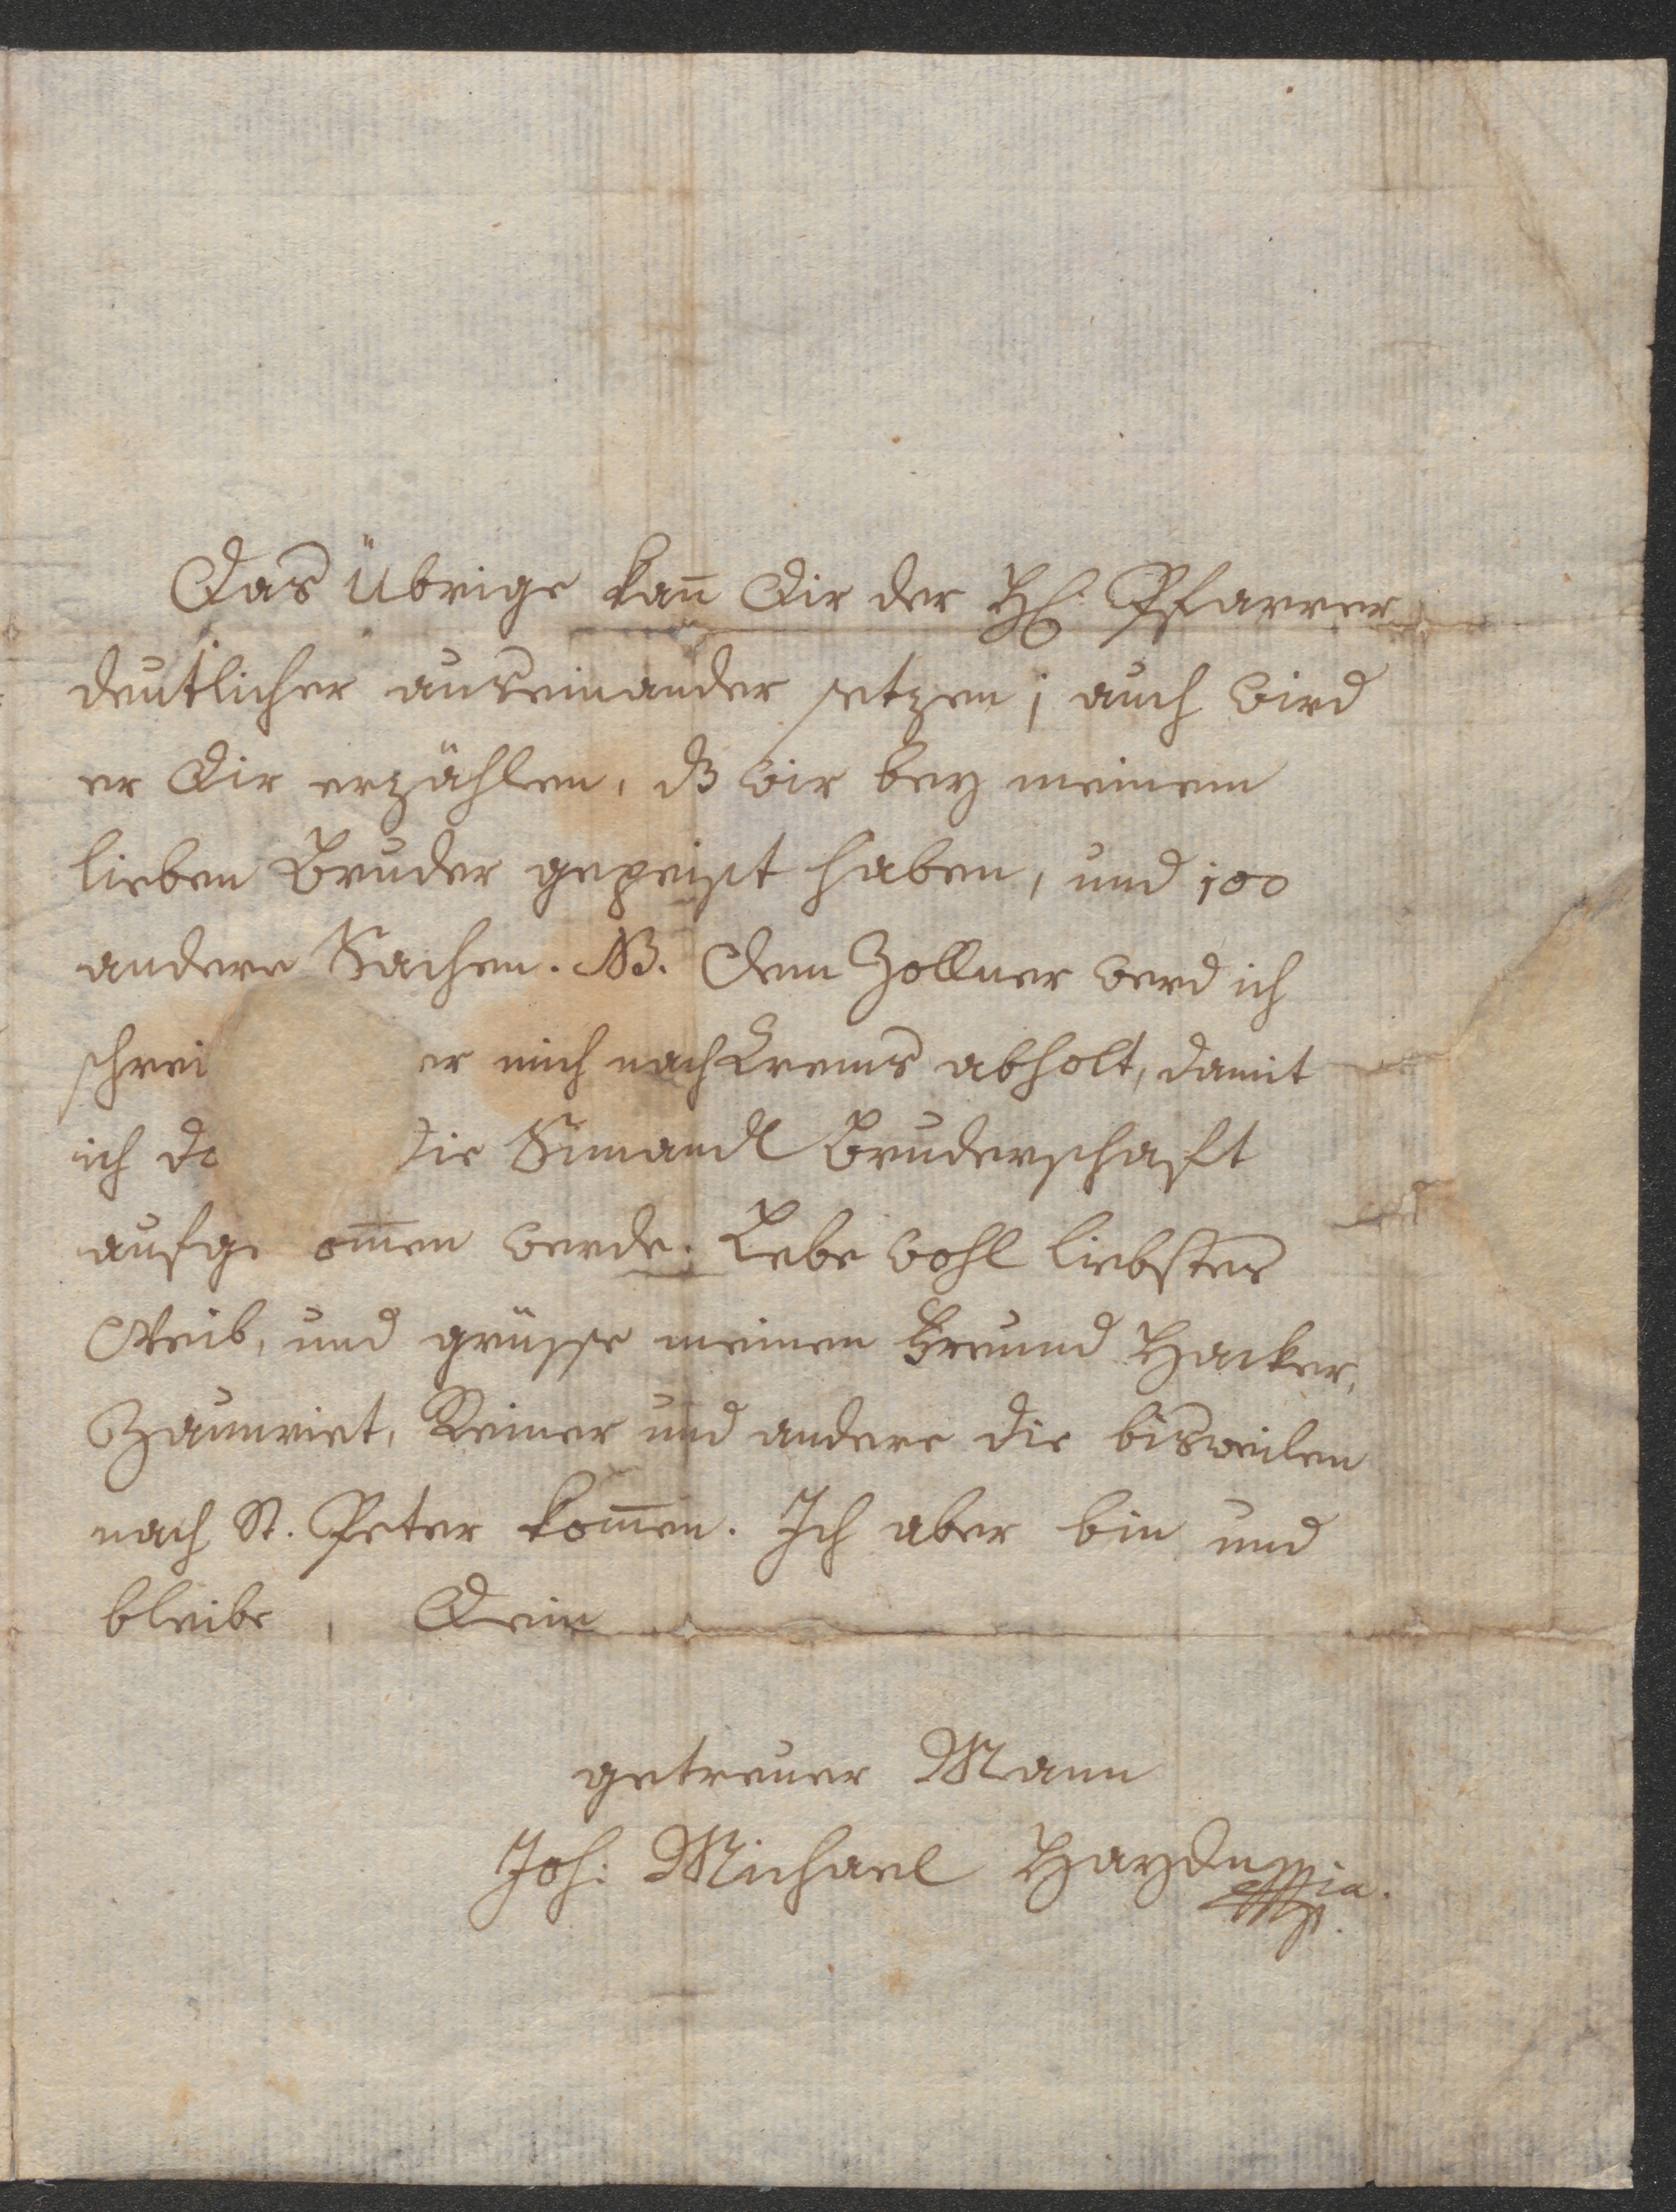 Das Übrige kan̄ Dir der H: Pfarrer
deutlicher auseinander setzen; auch wird
er Dir erzählen, dß wir bey meinem
lieben Bruder gespeist haben, und 100
andere Sachen. NB. Dem Zollner werd ich
schrei er mich nach Krems abholt, damit
ich da die Simandl Bruderschaft
aufge om̄en werde. Lebe wohl liebstes
Weib, und grüsse meinen Freund Hacker,
Zaunriet, Reiner und andere die bisweilen
nach St. Peter kom̄en. Ich aber bin und
bleibe, Dein
getreuer Mann
Joh: Michael Haydn mpia.